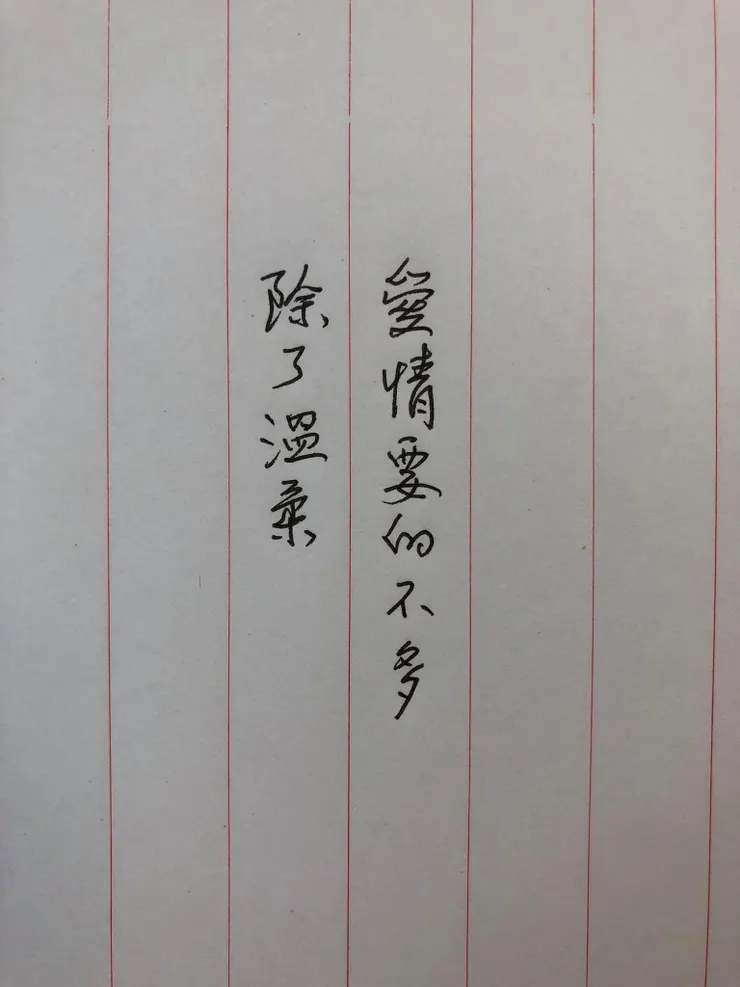 愛情要的不多
除了溫柔